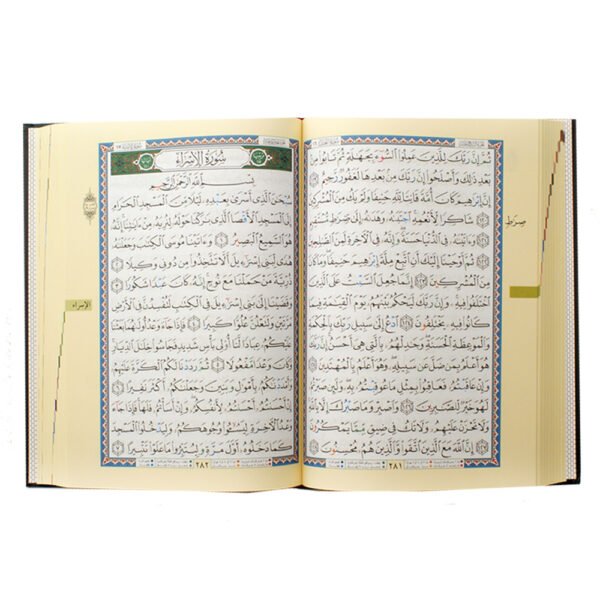 ثُمَّ إِنَّ رَبَّكَ لِلَّذِينَ عَمِلُوا۟ ٱلسُّوٓءَ بِجَهَـٰلَةٍ ثُمَّ تَابُوا۟ مِنۢ
بَعْدِ ذَٰلِكَ وَأَصْلَحُوٓا۟ إِنَّ رَبَّكَ مِنۢ بَعْدِهَا لَغَفُورٌ رَّحِيمٌ ١١٩
إِنَّ إِبْرَٰهِيمَ كَانَ أُمَّةً قَانِتًا لِّلَّهِ حَنِيفًا وَلَمْ يَكُ مِنَ ٱلْمُشْرِكِينَ ١٢٠
شَاكِرًا لِّأَنْعُمِهِ ٱجْتَبَىٰهُ وَهَدَىٰهُ إِلَىٰ صِرَٰطٍ مُّسْتَقِيمٍ ١٢١
وَءَاتَيْنَـٰهُ فِى ٱلدُّنْيَا حَسَنَةً وَإِنَّهُۥ فِى ٱلْـَٔاخِرَةِ لَمِنَ ٱلصَّـٰلِحِينَ ١٢٢
ثُمَّ أَوْحَيْنَآ إِلَيْكَ أَنِ ٱتَّبِعْ مِلَّةَ إِبْرَٰهِيمَ حَنِيفًا وَمَا كَانَ
مِنَ ٱلْمُشْرِكِينَ ١٢٣ إِنَّمَا جُعِلَ ٱلسَّبْتُ عَلَى ٱلَّذِينَ
ٱخْتَلَفُوا۟ فِيهِ وَإِنَّ رَبَّكَ لَيَحْكُمُ بَيْنَهُمْ يَوْمَ ٱلْقِيَـٰمَةِ فِيمَا
كَانُوا۟ فِيهِ يَخْتَلِفُونَ ١٢٤ ٱدْعُ إِلَىٰ سَبِيلِ رَبِّكَ بِٱلْحِكْمَةِ
وَٱلْمَوْعِظَةِ ٱلْحَسَنَةِ وَجَـٰدِلْهُم بِٱلَّتِى هِىَ أَحْسَنُ إِنَّ رَبَّكَ
هُوَ أَعْلَمُ بِمَن ضَلَّ عَن سَبِيلِهِۦ وَهُوَ أَعْلَمُ بِٱلْمُهْتَدِينَ ١٢٥
وَإِنْ عَاقَبْتُمْ فَعَاقِبُوا۟ بِمِثْلِ مَا عُوقِبْتُم بِهِۦ وَلَئِن صَبَرْتُمْ
لَهُوَ خَيْرٌ لِّلصَّـٰبِرِينَ ١٢٦ وَٱصْبِرْ وَمَا صَبْرُكَ إِلَّا بِٱللَّهِ
وَلَا تَحْزَنْ عَلَيْهِمْ وَلَا تَكُ فِى ضَيْقٍ مِّمَّا يَمْكُرُونَ ١٢٧
إِنَّ ٱللَّهَ مَعَ ٱلَّذِينَ ٱتَّقَوا۟ وَّٱلَّذِينَ هُم مُّحْسِنُونَ ١٢٨
٢٨١
صِرَٰطٍ
سُورَةُ الإِسْرَاءِ
بِسْمِ ٱللَّهِ ٱلرَّحْمَـٰنِ ٱلرَّحِيمِ
سُبْحَـٰنَ ٱلَّذِىٓ أَسْرَىٰ بِعَبْدِهِۦ لَيْلًا مِّنَ ٱلْمَسْجِدِ ٱلْحَرَامِ
إِلَى ٱلْمَسْجِدِ ٱلْأَقْصَا ٱلَّذِى بَـٰرَكْنَا حَوْلَهُۥ لِنُرِيَهُۥ مِنْ ءَايَـٰتِنَآ إِنَّهُۥ
هُوَ ٱلسَّمِيعُ ٱلْبَصِيرُ ١ وَءَاتَيْنَا مُوسَى ٱلْكِتَـٰبَ وَجَعَلْنَـٰهُ
هُدًى لِّبَنِىٓ إِسْرَٰٓءِيلَ أَلَّا تَتَّخِذُوا۟ مِن دُونِى وَكِيلًا ٢
ذُرِّيَّةَ مَنْ حَمَلْنَا مَعَ نُوحٍ إِنَّهُۥ كَانَ عَبْدًا شَكُورًا ٣
وَقَضَيْنَآ إِلَىٰ بَنِىٓ إِسْرَٰٓءِيلَ فِى ٱلْكِتَـٰبِ لَتُفْسِدُنَّ فِى ٱلْأَرْضِ
مَرَّتَيْنِ وَلَتَعْلُنَّ عُلُوًّا كَبِيرًا ٤ فَإِذَا جَآءَ وَعْدُ أُولَىٰهُمَا بَعَثْنَا
عَلَيْكُمْ عِبَادًا لَّنَآ أُو۟لِى بَأْسٍ شَدِيدٍ فَجَاسُوا۟ خِلَـٰلَ ٱلدِّيَارِ
وَكَانَ وَعْدًا مَّفْعُولًا ٥ ثُمَّ رَدَدْنَا لَكُمُ ٱلْكَرَّةَ عَلَيْهِمْ
وَأَمْدَدْنَـٰكُم بِأَمْوَٰلٍ وَبَنِينَ وَجَعَلْنَـٰكُمْ أَكْثَرَ نَفِيرًا ٦
إِنْ أَحْسَنتُمْ أَحْسَنتُمْ لِأَنفُسِكُمْ وَإِنْ أَسَأْتُمْ فَلَهَا فَإِذَا جَآءَ
وَعْدُ ٱلْـَٔاخِرَةِ لِيَسُـۥٓـُٔوا۟ وُجُوهَكُمْ وَلِيَدْخُلُوا۟ ٱلْمَسْجِدَ
كَمَا دَخَلُوهُ أَوَّلَ مَرَّةٍ وَلِيُتَبِّرُوا۟ مَا عَلَوْا۟ تَتْبِيرًا ٧
٢٨٢
الإسراء